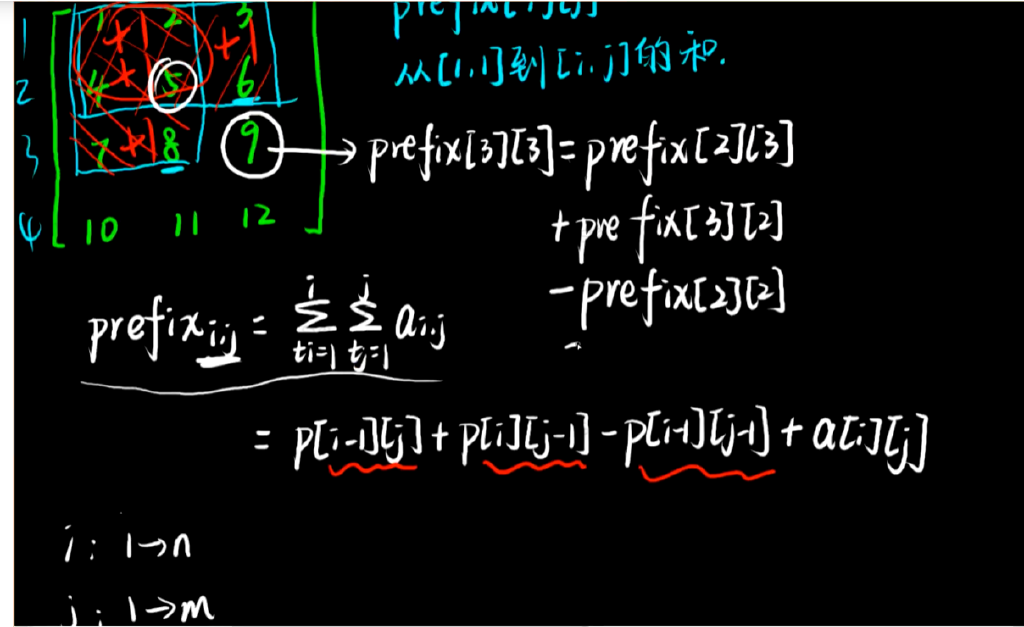 prefix[i][j]
从[1,1]到[i,j]的和.
1 1 2 3 +1 +1
2 4 5 6 +
3 7 8 9 +1 → prefix[3][3]=prefix[2][3]
+prefix[3][2]
4 10 11 12
-prefix[2][2]
prefix i,j = i∑ti=1 j∑tj=1 ai,j
= p[i-1][j]+p[i][j-1]-p[i-1][j-1]+a[i][j]
i: 1→n
j: 1→m